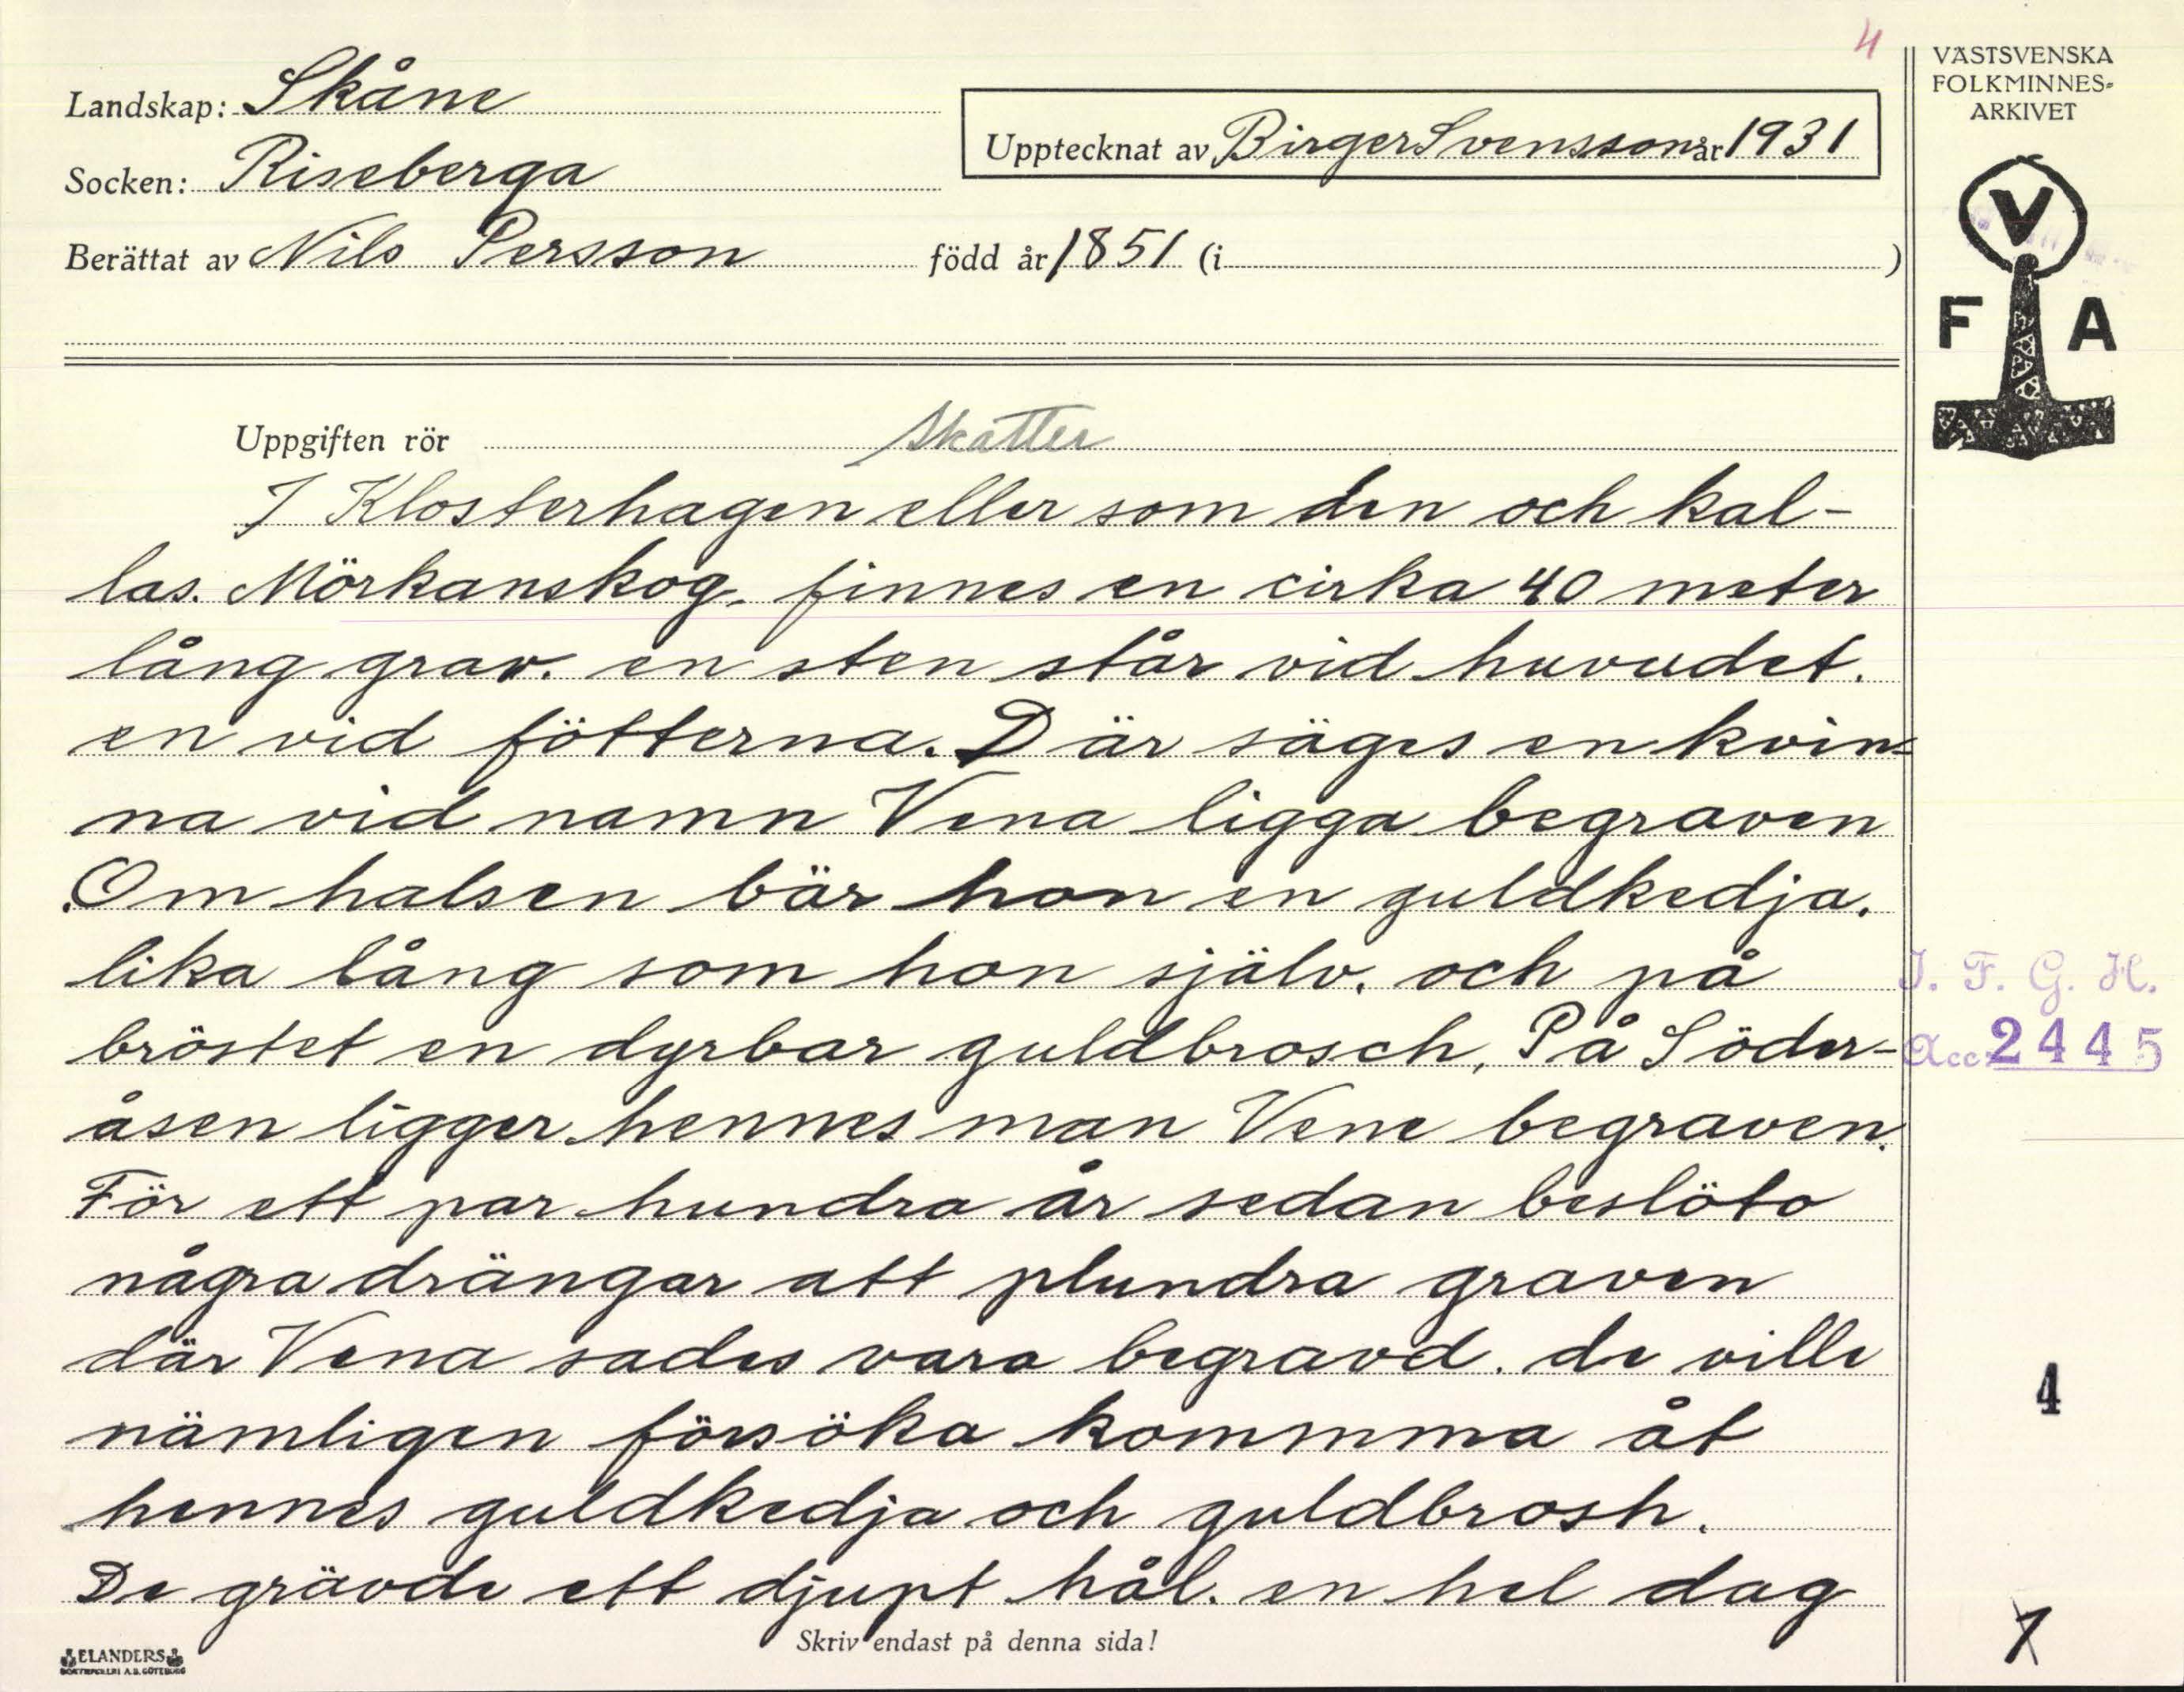 4
VÄSTSVENSKA
FOLKMINNES-
ARKIVET
Landskap: Skåne
Upptecknat av Birger Svensson år 1931
Socken: Riseberga
Berättat av Nils Persson född år 1851 (i )
V
F A
Uppgiften rör Skatter
I Klosterhagen eller som den och kal-
las. Mörkanskog. finnes en cirka 40 meter
lång grav. en sten står vid huvudet.
en vid fötterna. Där säges en kvin-
na vid namn Vena ligga begraven
Om halsen bär hon en guldkedja.
lika lång som hon själv. och på
bröstet en dyrbar guldbrosch, På Söder-
åsen ligger hennes man Vene begraven.
För ett par hundra år sedan beslöto
några drängar att plundra graven
där Vena sades vara begravd. de ville
nämligen försöka kommma åt
hennes guldkedja och guldbrosh.
De grävde ett djupt hål. en hel dag
I. F. G. H.
Acc 2445
4
1
Skriv endast på denna sida!
ELANDERS
BOKTRYCKERI A.B. GÖTEBORG